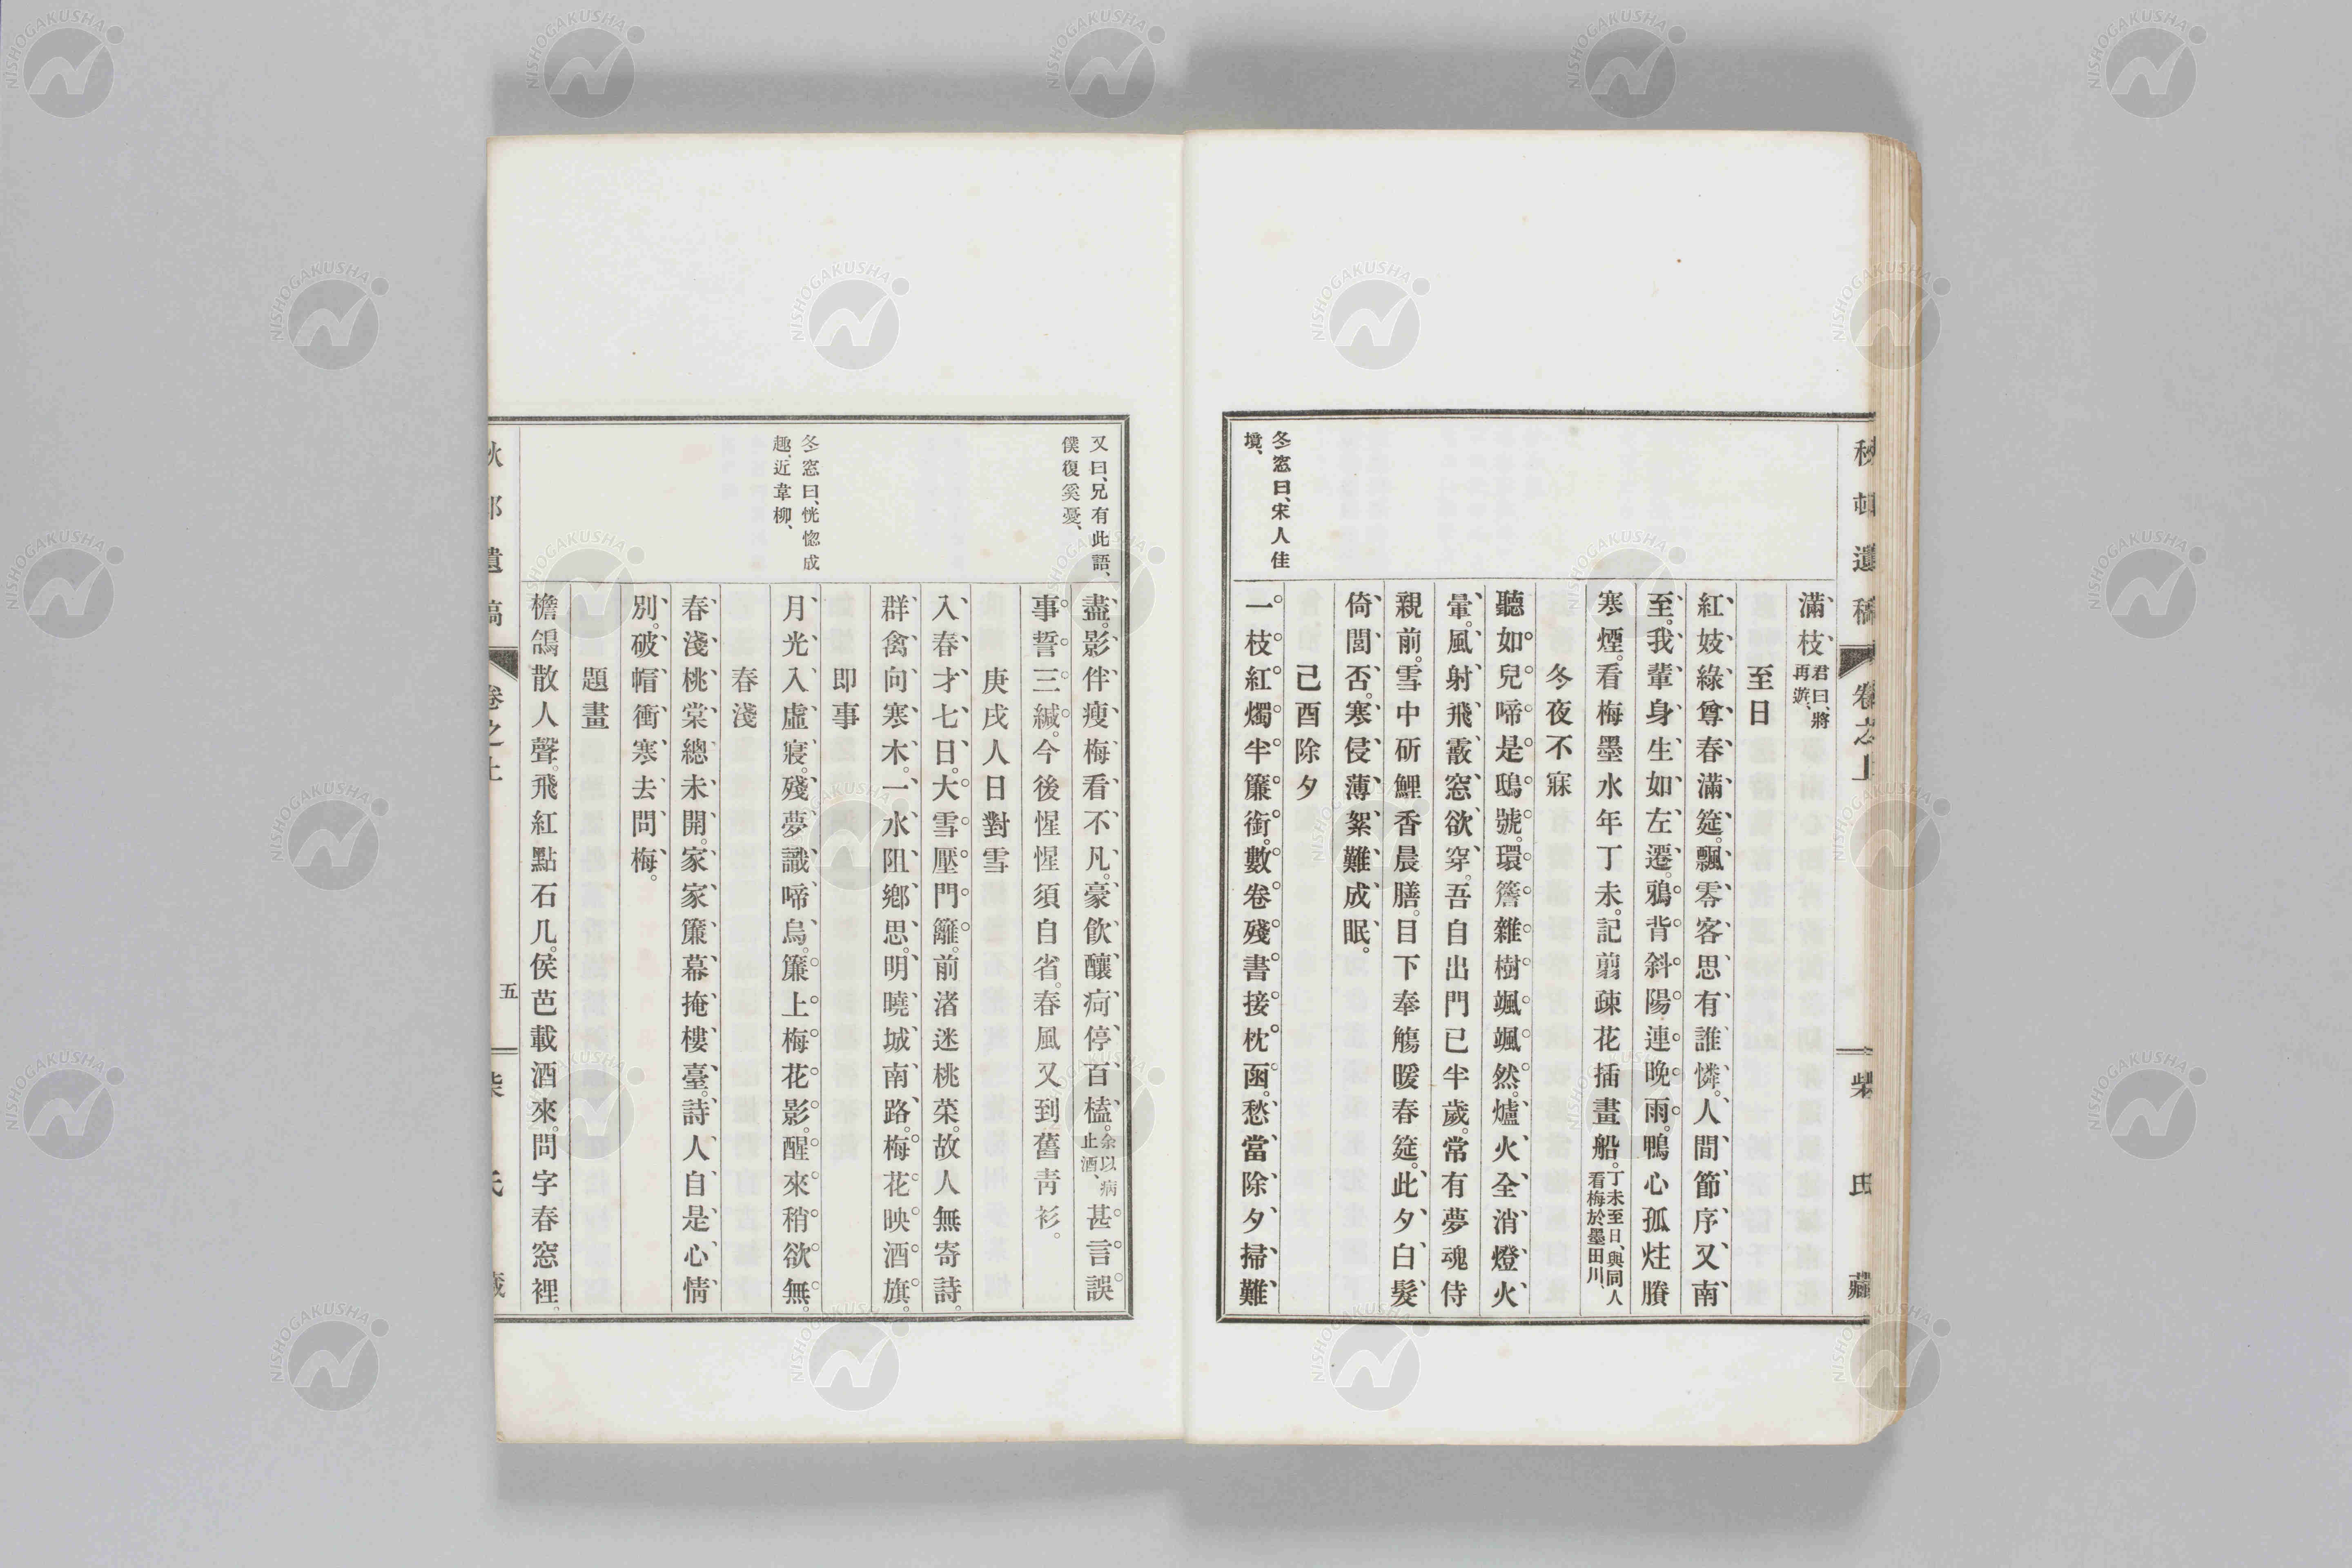 遺稿
卷之上
柴氏藏
滿枝、君曰、將再遊、
至日
紅妓綠尊春滿筵。飄零客思有誰憐。人間節序又南
至。我輩身生如左遷。鴉背斜陽連晚雨。鴨心孤炷賸
寒煙。看梅墨水年丁未。記翦疎花插畫船。丁未至日、與同人看梅於墨田川、
冬夜不寐
聽如兒啼是鴟號。環簷雜樹颯颯然。爐火全消燈火
暈。風射飛霰窓欲穿。吾自出門已半歲。常有夢魂侍
親前。雪中斫鯉香晨膳。目下奉觴暖春筵。此夕白髮
倚閭否。寒侵薄絮難成眠。
己酉除夕
冬窓曰、宋人佳
境、
一枝紅燭半簾銜。數卷殘書接枕函。愁當除夕掃難
又曰、兄有此語、
僕復奚憂、
盡。影伴瘦梅看不凡。豪飮釀疴停百榼。余以病止酒、甚言誤
事誓三緘。今後惺惺須自省。春風又到舊靑衫。
庚戌人日對雪
入春才七日。大雪壓門籬。前渚迷桃菜。故人無寄詩。
群禽向寒木。一水阻鄕思。明曉城南路。梅花映酒旗。
即事
冬窓曰、恍惚成
趣、近韋柳、
月光入虛寢。殘夢識啼烏。簾上梅花影。醒來稍欲無。
春淺
春淺桃棠總未開。家家簾幕掩樓臺。詩人自是心情
別。破帽衝寒去問梅。
題畫
檐鵠散人聲。飛紅點石几。侯芭載酒來。問字春窓裡。
遺稿
卷之上
五